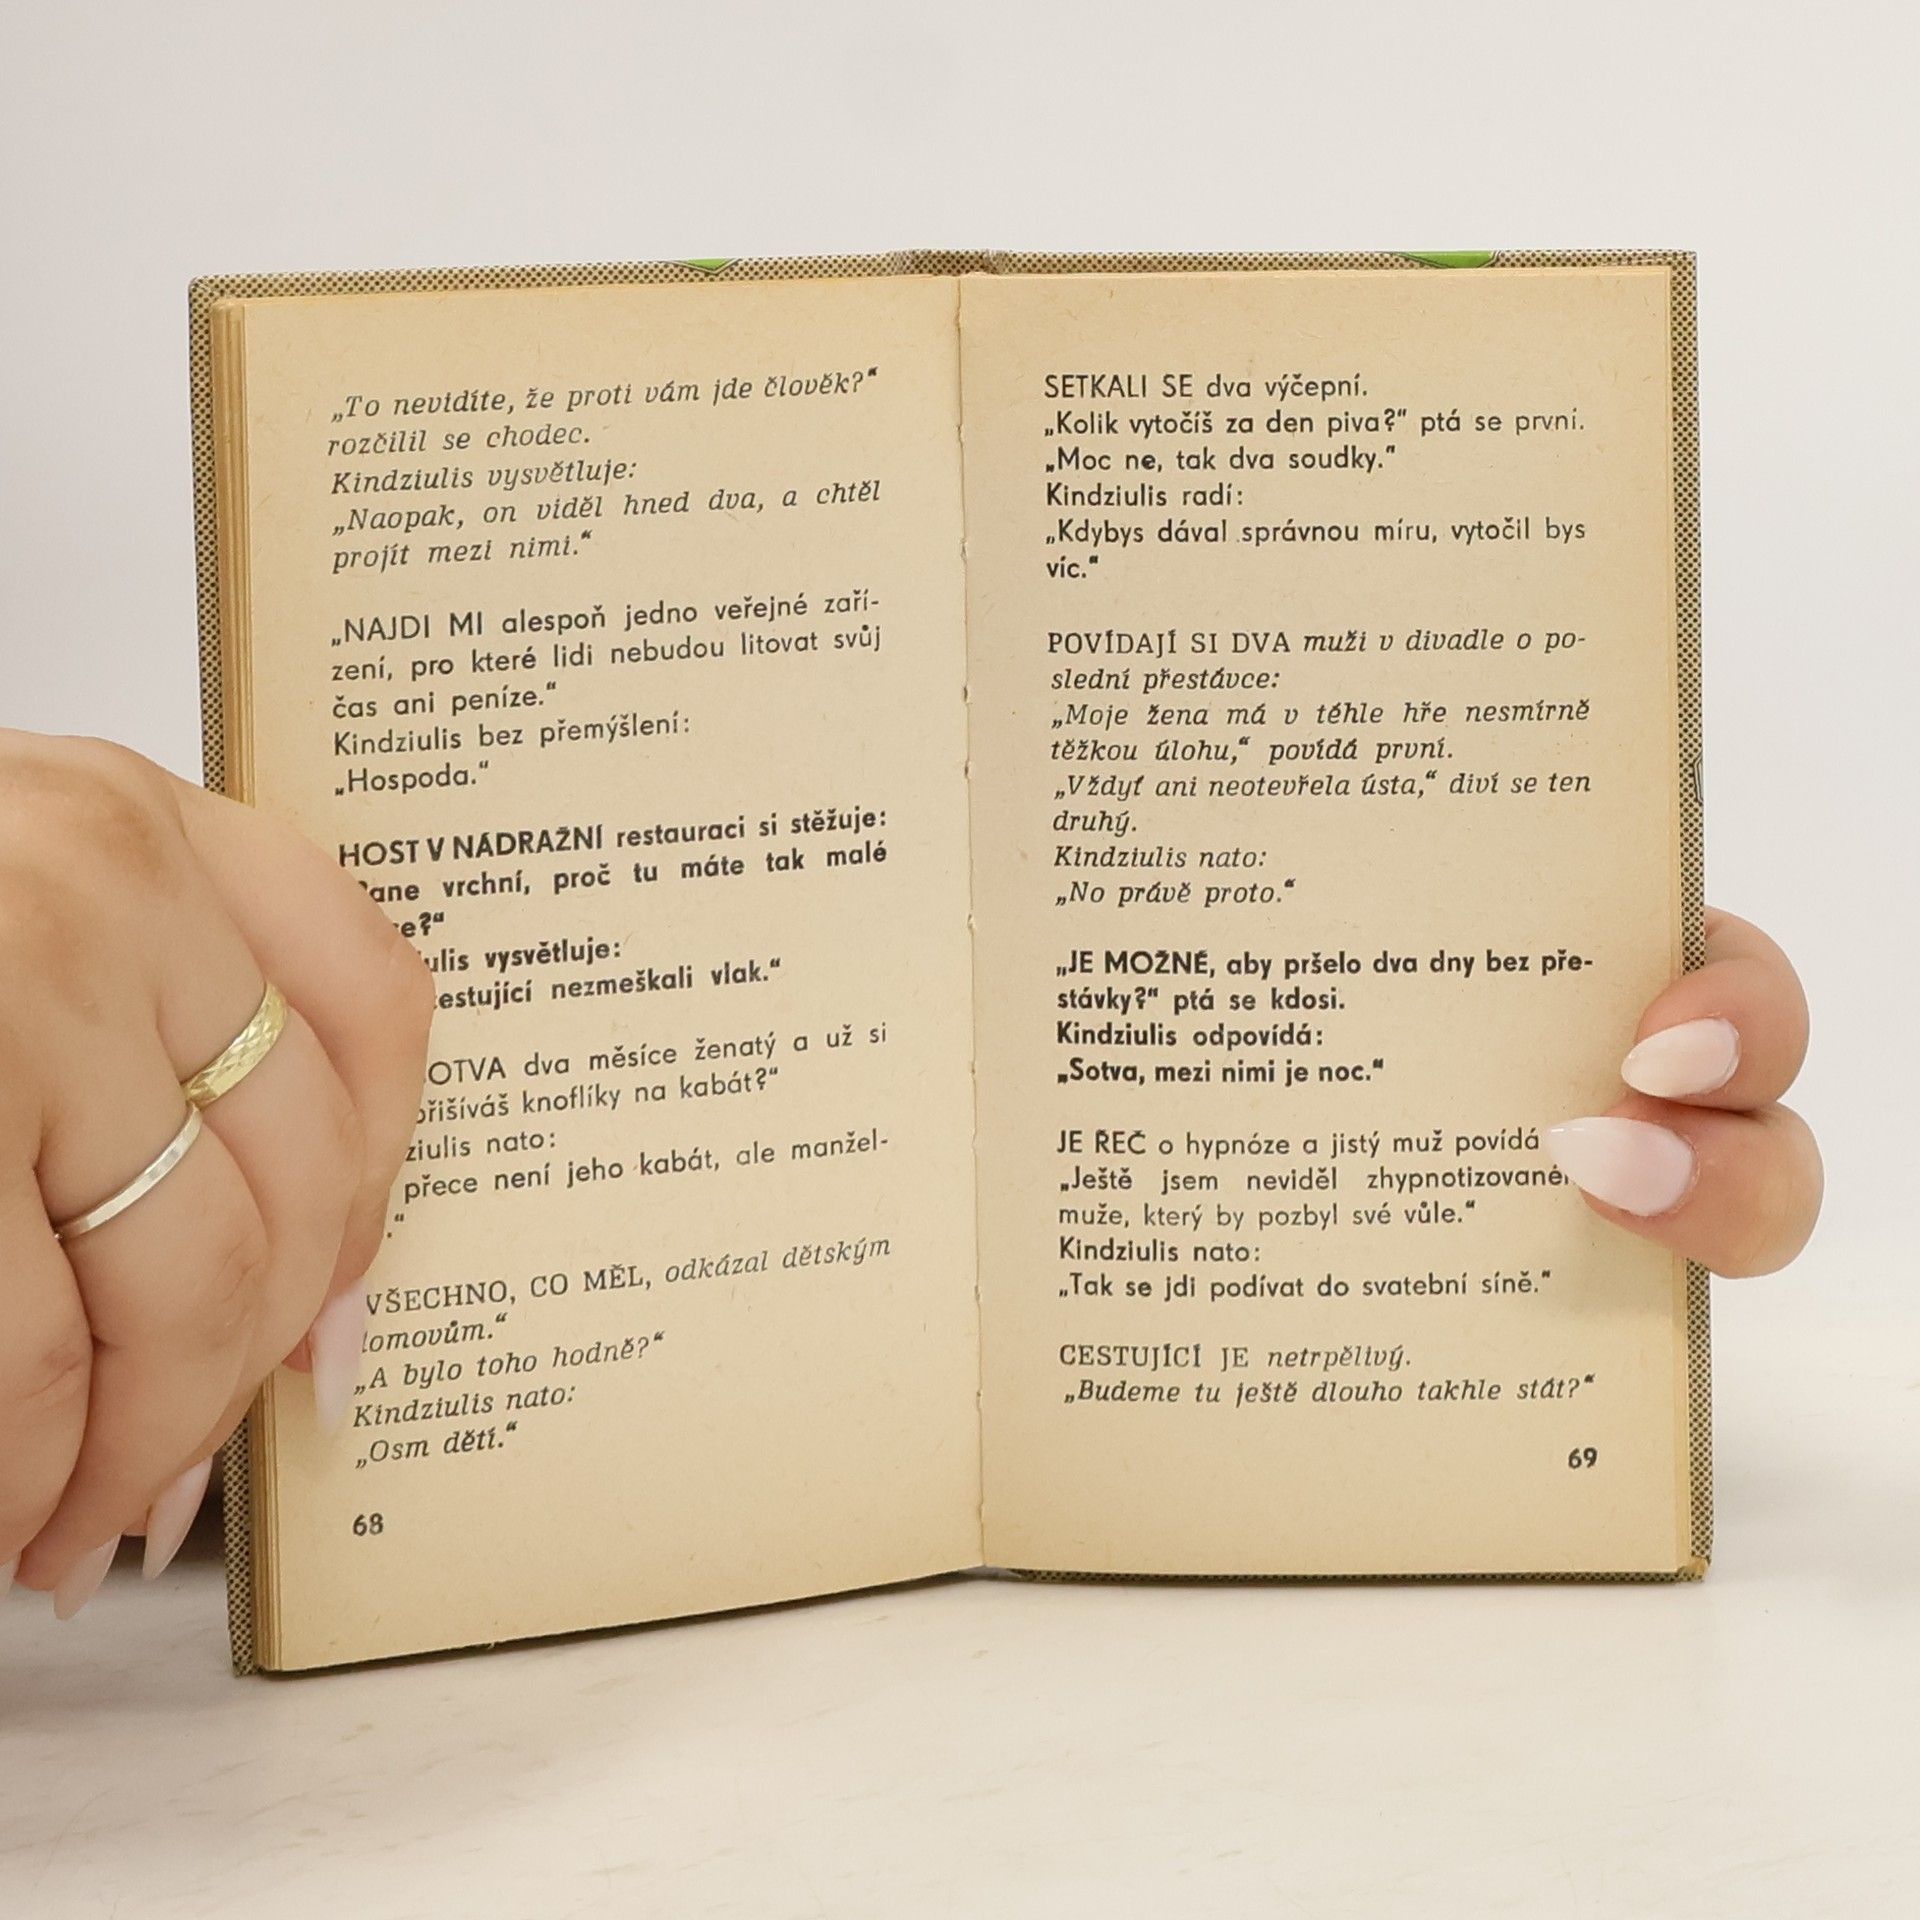 „To nevidíte, že proti vám jde člověk?“
rozčilil se chodec.
Kindziulis vysvětluje:
„Naopak, on viděl hned dva, a chtěl
projít mezi nimi.“
„NAJDI MI alespoň jedno veřejné zaří-
zení, pro které lidi nebudou litovat svůj
čas ani peníze.“
Kindziulis bez přemýšlení:
„Hospoda.“
HOST V NÁDRAŽNÍ restauraci si stěžuje:
vrchní, proč tu máte tak malé
vysvětluje:
nezmeškali vlak.“
dva měsíce ženatý a už si
knoflíky na kabát?“
nato:
přece není jeho kabát, ale manžel-
VŠECHNO, CO MĚL, odkázal dětským
„A bylo toho hodně?“
Kindziulis nato:
„Osm dětí.“
68
SETKALI SE dva výčepní.
„Kolik vytočíš za den piva?“ ptá se první.
„Moc ne, tak dva soudky.“
Kindziulis radí:
„Kdybys dával správnou míru, vytočil bys
víc.“
POVÍDAJÍ SI DVA muži v divadle o po-
slední přestávce:
„Moje žena má v téhle hře nesmírně
těžkou úlohu,“ povídá první.
„Vždyť ani neotevřela ústa,“ diví se ten
druhý.
Kindziulis nato:
„No právě proto.“
„JE MOŽNÉ, aby pršelo dva dny bez pře-
stávky?“ ptá se kdosi.
Kindziulis odpovídá:
„Sotva, mezi nimi je noc.“
JE ŘEČ o hypnóze a jistý muž povídá
„Ještě jsem neviděl
muže, který by pozbyl své vůle.“
Kindziulis nato:
„Tak se jdi podívat do svatební síně.“
CESTUJÍCÍ JE netrpělivý.
„Budeme tu ještě dlouho takhle stát?“
69